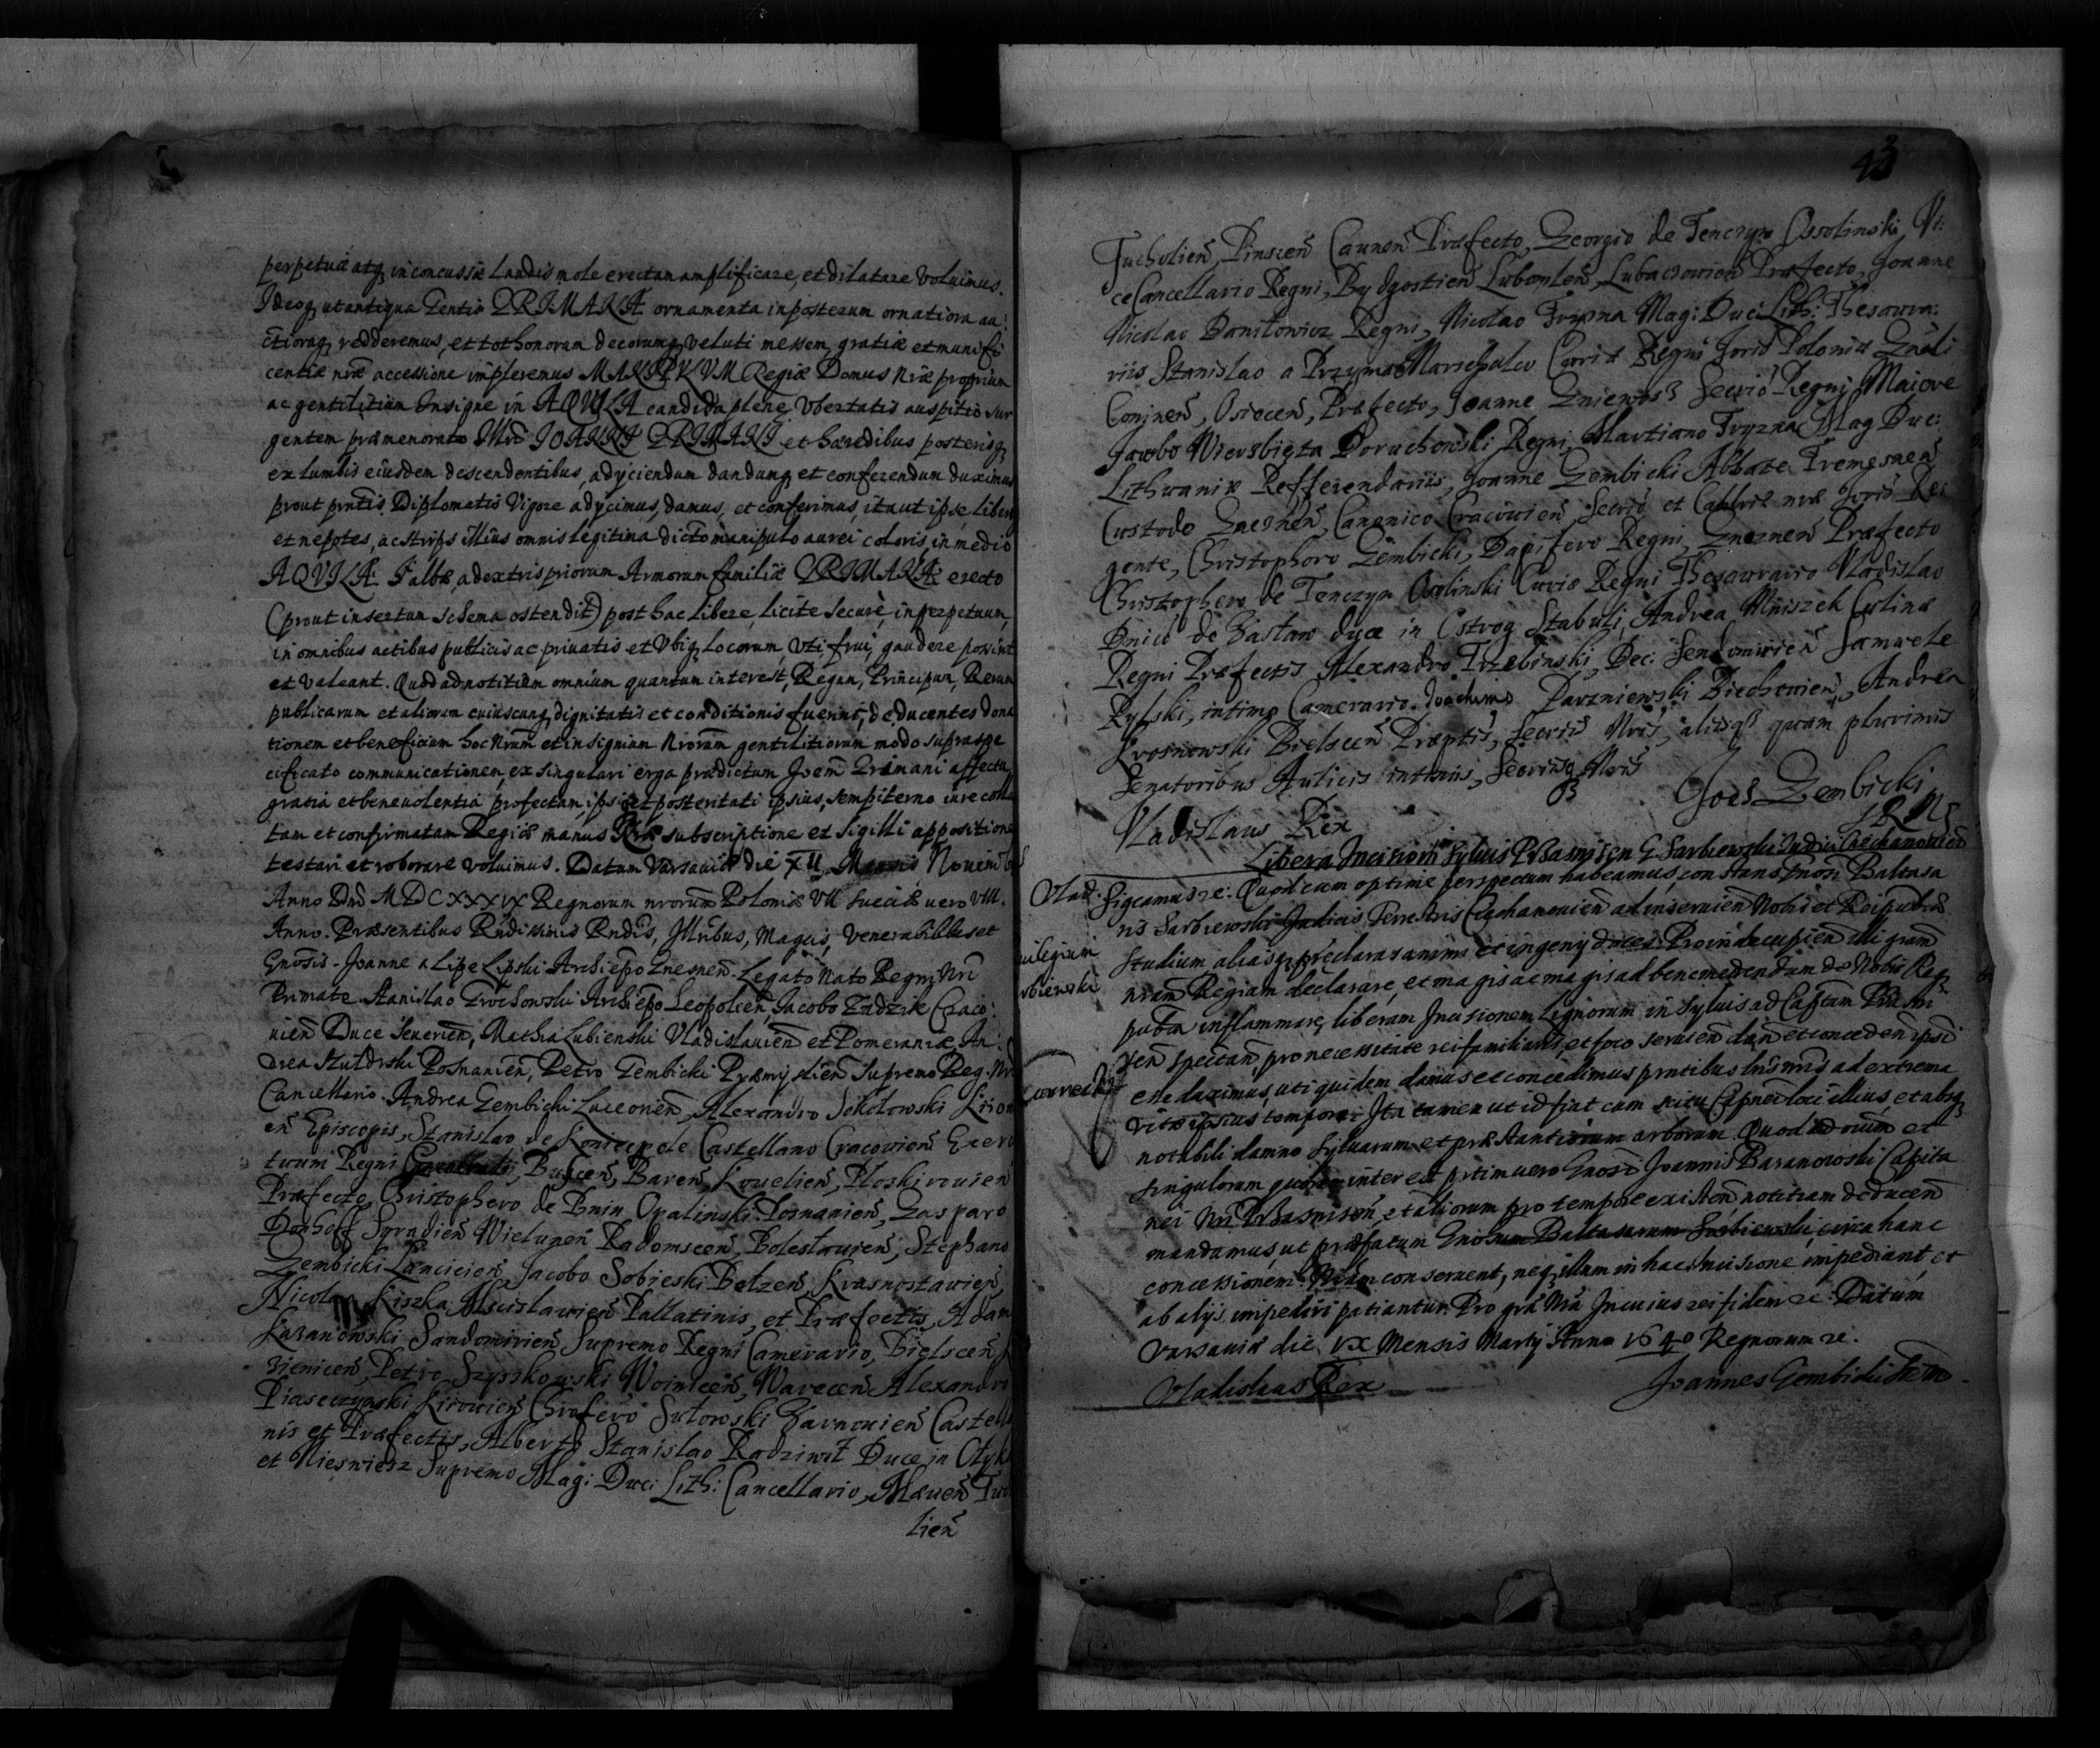 perpetuæ atq inconcussæ Laudis mole erectam amplificare, et dilatare voluimus.
Ideoq ut antiqua Gentis GRIMANÆ ornamenta in posterum ornatiora au
ctioraq redderemus, et tot honorum decorumq veluti messem, gratiæ et munifi
centiæ nræ accessione impleremus MANIPVLVM Regiæ Domus Nræ proprium
ac gentilitium Insigne in AQVILA candida plene Vbertatis auspitio sur
gentem præmenorato IOANNI GRIMANI et hæredibus posterisq
ex lumbis eiusdem descendentibus, adyciendum dandumq et conferendum duximus
prout pntis Diplomatis Vigore adycimus, damus, et conferimus, ita ut ipse, liberi
et nepotes, ac stirps illius omnis legitima dicto manipulo aurei coloris, in medio
AQVILÆ albæ, a dextris priorum Armorum familiæ GRIMANÆ erecto
(prout insertum schema ostendit) post hac libere, licite, secure, in perpetuum,
in omnibus actibus publicis ac priuatis et Vbiq Locorum, Vti, frui, gaudere possint
et Valeant. Quod ad notitiam omnium quantum interest, Regum, Principum, Rerum
publicarum et aliorum cuiuscunq dignitatis et conditionis fuerint, deducentes dona
tionem et beneficium hoc Nrum et insignium Nrorum gentilitiorum modo supra spe
cificato communicationem, ex singulari erga prædictum Joem Grimani affectu
gratia et beneuolentia profectam, ipsi et posteritati ipsius, sempiterno iure colla
tam et confirmatam Regiæ manus Nræ subscriptione et Sigilli appositione
testari et roborare voluimus. Datum Varsauiæ die XII Mensis Nouemb
Anno Dni MDCXXXIX Regnorum nrorum Poloniæ VII Sueciæ uero VIII.
Anno. Præsentibus Rndissimis Rndis, Illribus, Magcis, Venerabilibus et
Gnosis. Joanne a Lipe Lipski Archiepo Gnesnen. Legato Nato Regni Nri
Primate Stanislao Grochowski Archiepo Leopolien, Jacobo Zadzik Craco:
uien Duce Seuerien, Mathia Lubienski Vladislauien et Pomeraniæ, An:
drea Szuldrski Posnanien, Petro Gembicki Præmyslien Supremo Reg. Nri
Cancellario. Andrea Gembicki Luceorien, Alexandro Sokolowski Kiiou
en Episcopis, Stanislao de Koniecpole Castellano Cracouien Exerci
tuum Regni Generali, Buscen, Baren, Kouelien, Ploskirouien
Præfecto, Christophero de Bnin Opalinski Posnanien, Gasparo
Donhoff Syradien Wielunen Radomscen, Boleslauien, Stephano
Gembicki Lancicien Jacobo Sobieski Belzen, Krasnostawien,
Nicolao Kiszka Mscislauien Pallatinis, et Præfectis, Adam
Kazanowski Sandomirien Supremo Regni Camerario, Bielscen,
rienicen, Petro Szyszkowski Woinicen, Warecen Alexandro
Piaseczynski Kiiouien Chrofero Sulowski Zarnouien Castella
nis et Præfectis, Alberto Stanislao Radziwił Duce in Olyka
et Nieswiesz Supremo Mag: Duci Lith: Cancellario, Mæuen Tuc
lien
43
Tucholien, Pinscen Caunen Præfecto, Georgio de Tenczyn Ossolinski, Vi:
ceCancellario Regni, Bydgostien Lubomlen, Lubaczowien Præfecto, Joanne
Nicolao Daniłowicz Regni, Nicolao Tryzna Mag: Duci Lith: Thesaura:
riis Stanislao a Przyma Marschalco Curiæ Regni Gnrli Poloniæ
Coninen, Osiecen, Præfecto, Joanne Gniewosz Secrio Regni Maiore
Jacobo Wierzbięta Doruchowski, Regni, Martiano Tryzna Mag Duc:
Lithuaniæ Refferendariis, Joanne Gembicki Abbate Tremesnen
Custode Gnesnen, Canonico Cracouien, Secrio et Cancellriæ nræ Re
gente, Christophoro Gembicki, Dapifero Regni, Gnesnen Præfecto
Christophero de Tenczyn Ossolinski Curiæ Regni Thesaurario Vladislao
Dnico de Zasław duce in Ostrog Stabuli, Andrea Mniszek Culinæ
Regni Præfectis Alexandro Trzebinski, Dec: Sendomirien Samuele
Rylski, intimo Camerario. Joachimo Darzniewski Andrea
Krosnowski Bielscen Præptis, Secriis Nris, aliisq quam plurimis
Senatoribus Aulicis intimis, Secriisq Nris
Vladislaus Rex
Joes Gembicki
SRMS
Libera Incisio in Syluis Prasnisen G. Sarbiewski Judici Ciechanouien
Vlad: Sigcamus re: Quod cum optime perspectum habeamus, constans Gnosi Baltasa
ris Sarbiewski Judicis Terrestris Ciechanouien ad inseruien Nobis et Reipublicæ
studium aliasq præclaras animi et ingeny dotes. Proinde cupien illi gram
nram Regiam declarare, et magis ac magis ad benemerendum de Nobis Reiq
publica inflammare, liberam Incisionem Lignorum in Syluis ad Captum Prasni
sen spectan, pro necessitate rei familiaris, et foco seruien dan et conceden ipsi
esse duximus, uti quidem damus et concedimus pntibus lris nris ad extrema
vitæ ipsius tempora. Ita tamen ut id fiat cum scitu Capnei loci illius, et absq
notabili damno syluarum et præstantiorum arborum. Quod ad omnium et
singulorum quorum interest prtim uero Gnosi Joannis Baranowski Capita
nei Nri Prasnisen, et aliorum pro tempore existen notitiam deducen
mandamus, ut præfatum Gnosum Baltasarum Sarbiewski, circa hanc
concessionem Nram conseruent, neq illum in hac Incisione impediant, et
ab alijs impediri patiantur. Pro gra Nra In cuius rei fidem re. Datum
Varsauiæ die IX Mensis Martij Anno 1640 Regnorum re.
Vladislaus Rex
Joannes Gembicki
uilegium
rbiewski
correcta